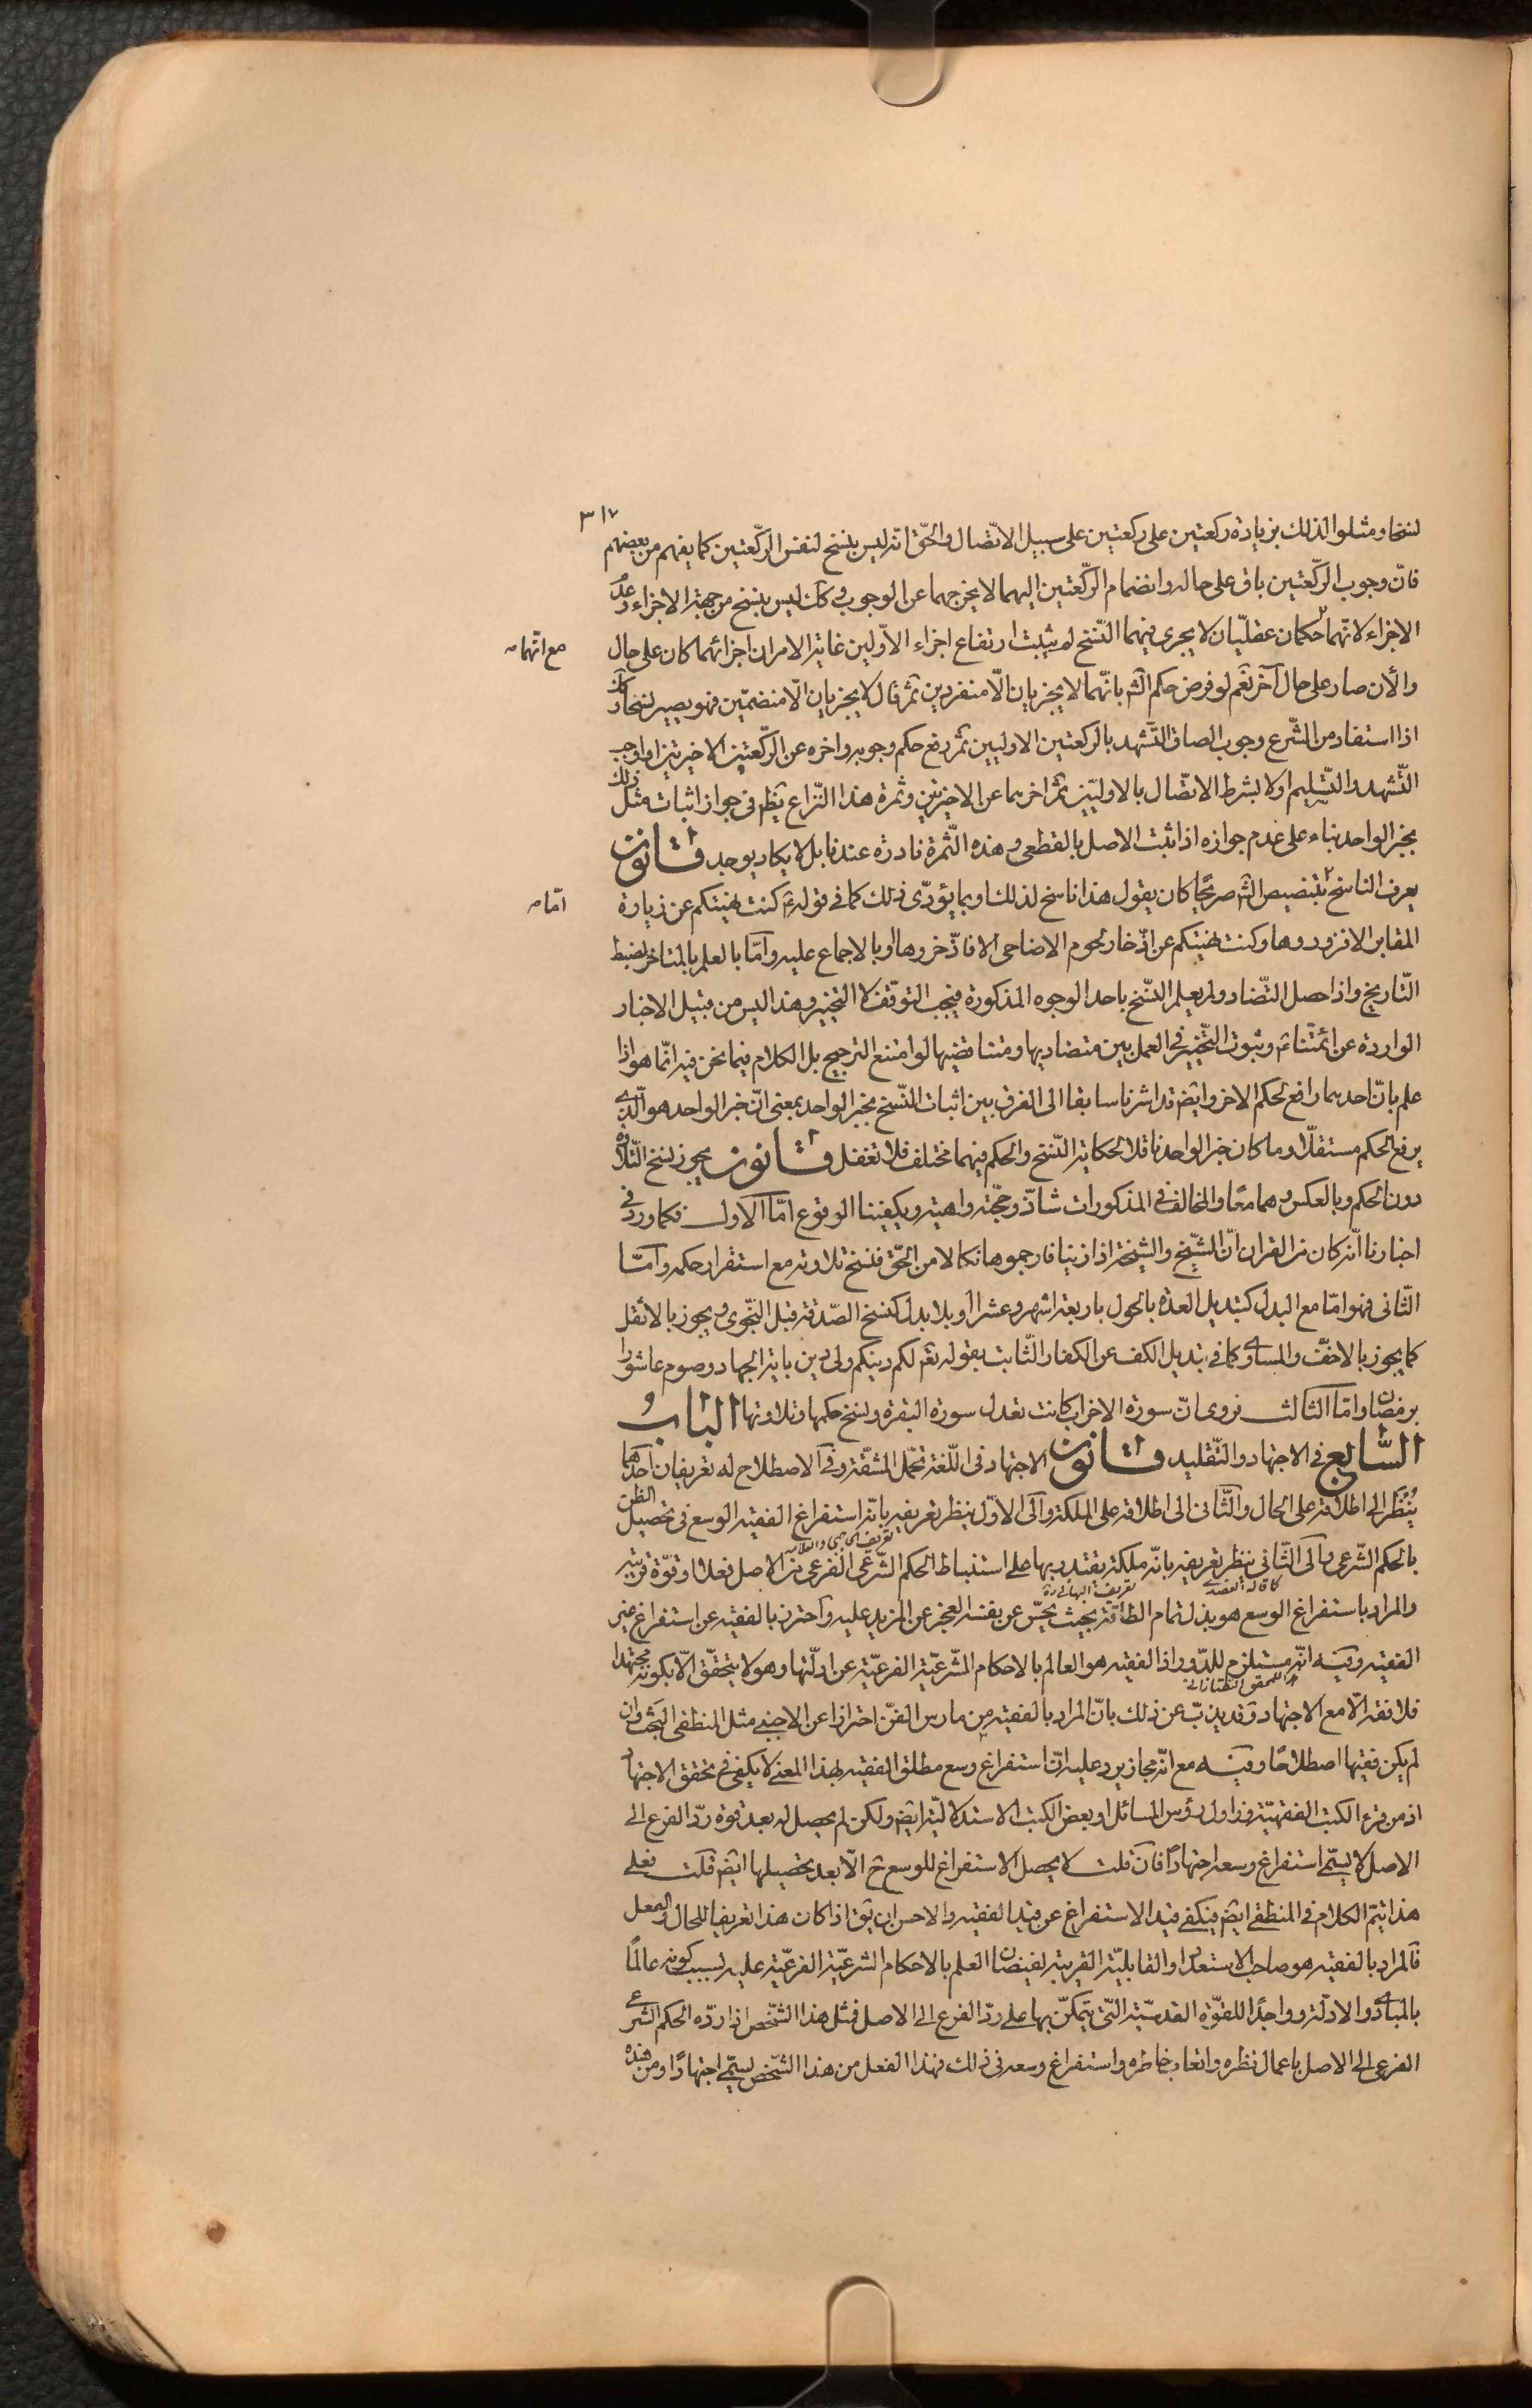 ٣١٧
نسخا ومثلوا لذلك بزيادة ركعتين على ركعتين على سبيل الاتّصال والحقّ انّه ليس بنسخ لنفس الرّكعتين كما يفهم من بعضهم
فانّ وجوب الرّكعتين باق على حاله وانضمام الرّكعتين اليهما لا يخرجهما عن الوجوب وكك ليس بنسخ من جهة الاجزاء وعدم
الاجزاء لانّهما حكمان عقليّان لا يجرى فيهما النّسخ لم يثبت ارتفاع اجزاء الاوّلين غاية الامر ان اجزائهما كان على حال
مع انّهما
والآن صار على حال آخر نعم لو فرض حكم الشّ بانّهما لا يجزيان الّا منفردين ثمّ قال لا يجزيان الّا منضمّين فهو يصير نسخا وكك
اذا استفاد من الشّرع وجوب الصاق التّشهد بالركعتين الاوليين ثمّ رفع حكم وجوبه واخره عن الرّكعتين الاخيرتين او اوجب
التّشهد والتّسليم اولا بشرط الاتصّال بالاوليّين ثمّ اخرهما عن الاخيرتين وثمرة هذا النّزاع يظهر فى جواز اثبات مثل ذلك
بخبر الواحد بناء على عدم جوازه اذا ثبت الاصل بالقطعى وهذه الثّمرة نادرة عندنا بل لا يكاد يوجد قانون
يعرف الناسخ بتنصيص الشّ صريحًا كان يقول هذا ناسخ لذلك او بما يؤدّى ذلك كما فى قوله ع كنت نهيتكم عن زيارة
امّا
المقابر الا فزوروها وكنت نهيتكم عن ادّخار لحوم الاضاحى الا فادّخروها او بالاجماع عليه وامّا بالعلم بالمتاخر لضبط
التّاريخ واذا حصل التّضاد ولم يعلم النّسخ باحد الوجوه المذكورة فيجب التوقّف لا التخيير وهذا ليس من قبيل الاخبار
الواردة عن ائمّتنا ع وثبوت التّخيير فى العمل بين متضاديها ومتناقضيها لو امتنع الترجيح بل الكلام فيما نحن فيه انّما هو اذا
علم بانّ احدهما رافع لحكم الاخر وايضَ قد اشرنا سابقا الى الفرق بين اثبات النّسخ بخبر الواحد بمعنى انّ خبر الواحد هو الّذى
يرفع الحكم مستقلّا وما كان خبر الواحد ناقلا لحكاية النّسخ والحكم فيهما مختلف فلا تغفل قانون يجوز نسخ التّلاوة
دون الحكم وبالعكس وهما معًا والمخالف فى المذكورات شاذّ وحجّته واهية ويكفيننا الوقوع امّا الاول فكما ورد فى
اخبارنا انّه كان من القران انّ الشّيخ والشّيخة اذا زنيا فارجموهما نكالا من الحقّ فنسخ تلاوته مع استقرار حكمه وامّا
الثّانى فهو امّا مع البدل كتبديل العدة بالحول باربعة اشهر وعشرا او بلا بدل كنسخ الصّدقة قبل النّجوى ويجوز بالاثقل
كما يجوز بالاخفّ والمساوى كما فى تبديل الكف عن الكفار الثّابت بقوله تعَم لكم دينكم ولى دين باية الجهاد وصوم عاشورا
برمضان وامّا الثالث فروى انّ سورة الاحزاب كانت تعدل سورة البقرة ونسخ حكمها وتلاوتها الباب
السّابع فى الاجتهاد والتّقليد قانون الاجتهاد فى اللّغة تحمّل المشقّة وفى الاصطلاح له تعريفان احدهما
يُنْظَر الى اطلاقه على الحال والثّانى الى اطلاقه على الملكة والى الاوّل ينظر تعريفه بانّه استفراغ الفقيه الوسع فى تحصيل الظن
تعريف الحاجبى والعلامة
بالحكم الشّرعى والى الثّانى ينظر تعريفه بانّه ملكة يقتدر بها على استنباط الحكم الشّرعّى الفرعى من الاصل فعلا او قوّة قريبة
كما قاله العضدى تعريف البهائى ره
والمراد باستفراغ الوسع هو بذل تمام الطّاقة بحيث يحسّ عن نفسه العجز عن المزيد عليه واحترز بالفقيه عن استفراغ غير
الفقيه وفيه انّه مستلزم للدّور اذا الفقيه هو العالم بالاحكام الشّرعيّة الفرعيّة عن ادلّتها وهو لا يتحقّق الّا بكونه مجتهدا
المحقق التفتازانى
فلا فقه الّا مع الاجتهاد وقد يذبّ عن ذلك بانّ المراد بالفقيه من مارس الفنّ احترازا عن الاجنبى مثل المنطقى البحت وان
لم يكن فقيها اصطلاحًا وفيه مع انّه مجاز يرد عليه انّ استفراغ وسع مطلق الفقيه بهذا المعنى لا يكفى فى تحقق الاجتهاد
اذ من قرء الكتب الفقهيّة وزاول رؤس المسائل او بعض الكتب الاستدلاليّة ايضَ ولكن لم يحصل له بعد قوة ردّ الفرع الى
الاصل لا يسمّى استفراغ وسعه اجتهادًا فان قلت لا يحصل الاستفراغ للوسع ح الّا بعد تحصيلها ايضَ قلت فعلى
هذا يتمّ الكلام فى المنطقى ايضَ فيكفى قيد الاستفراغ عن قيد الفقيه والاحسن ان يق اذا كان هذا تعريفا للحال والفعل
فالمراد بالفقيه هو صاحب الاستعداد والقابليّة القريبة لفيضان العلم بالاحكام الشرعيّة الفرعيّة عليه بسبب كونه عالمًا
بالمبادى والادلّة وواجدًا للقوّة القدسيّة التّى يتمكّن بها على ردّ الفرع الى الاصل فمثل هذا الشّخص اذا ردّه الحكم الشرعى
الفرعى الى الاصل باعمال نظره واتعاب خاطره واستفراغ وسعه فى ذلك فهذا الفعل من هذا الشّخص يسمّى اجتهادًا ومن هذه